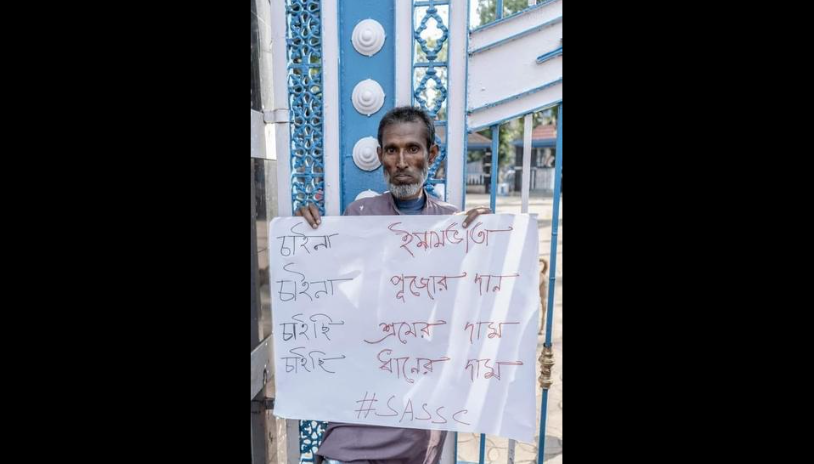 চাইনা ইমামভাতা
চাইনা পূজোর দান
চাইছি শ্রমের দাম
চাইছি ধানের দাম
#SASSC